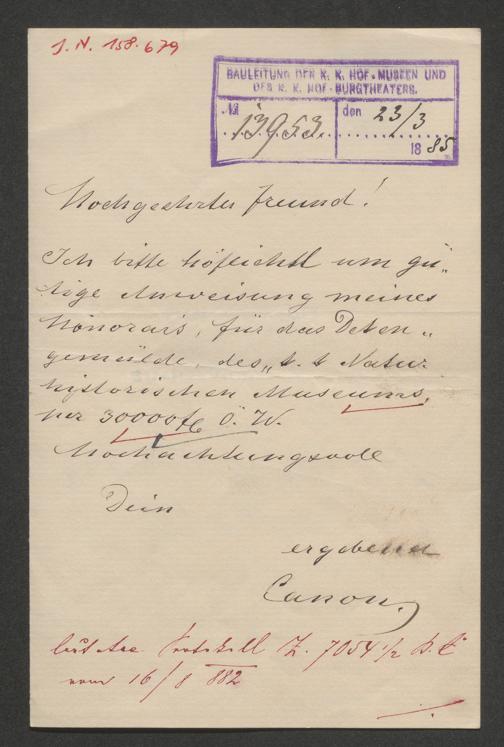 J. N. 158.679
BAULEITUNG DER K. K. HOF-MUSEEN UND
DES K. K. HOF-BURGTHEATERS.
№ 13953 den 23/3
1885.
Hochgeehrter Freund!
Ich bitte höflichst um gü„
tige Anweisung meines
Honorars, für das Decken„
gemälde, des „k. k Natur
historischen Museums,
per 30000 fl Ö. W.
Hochachtungsvoll
Dein
ergebener
Canon.
Protokoll Z. 7054 1/2
vom 16/8 882